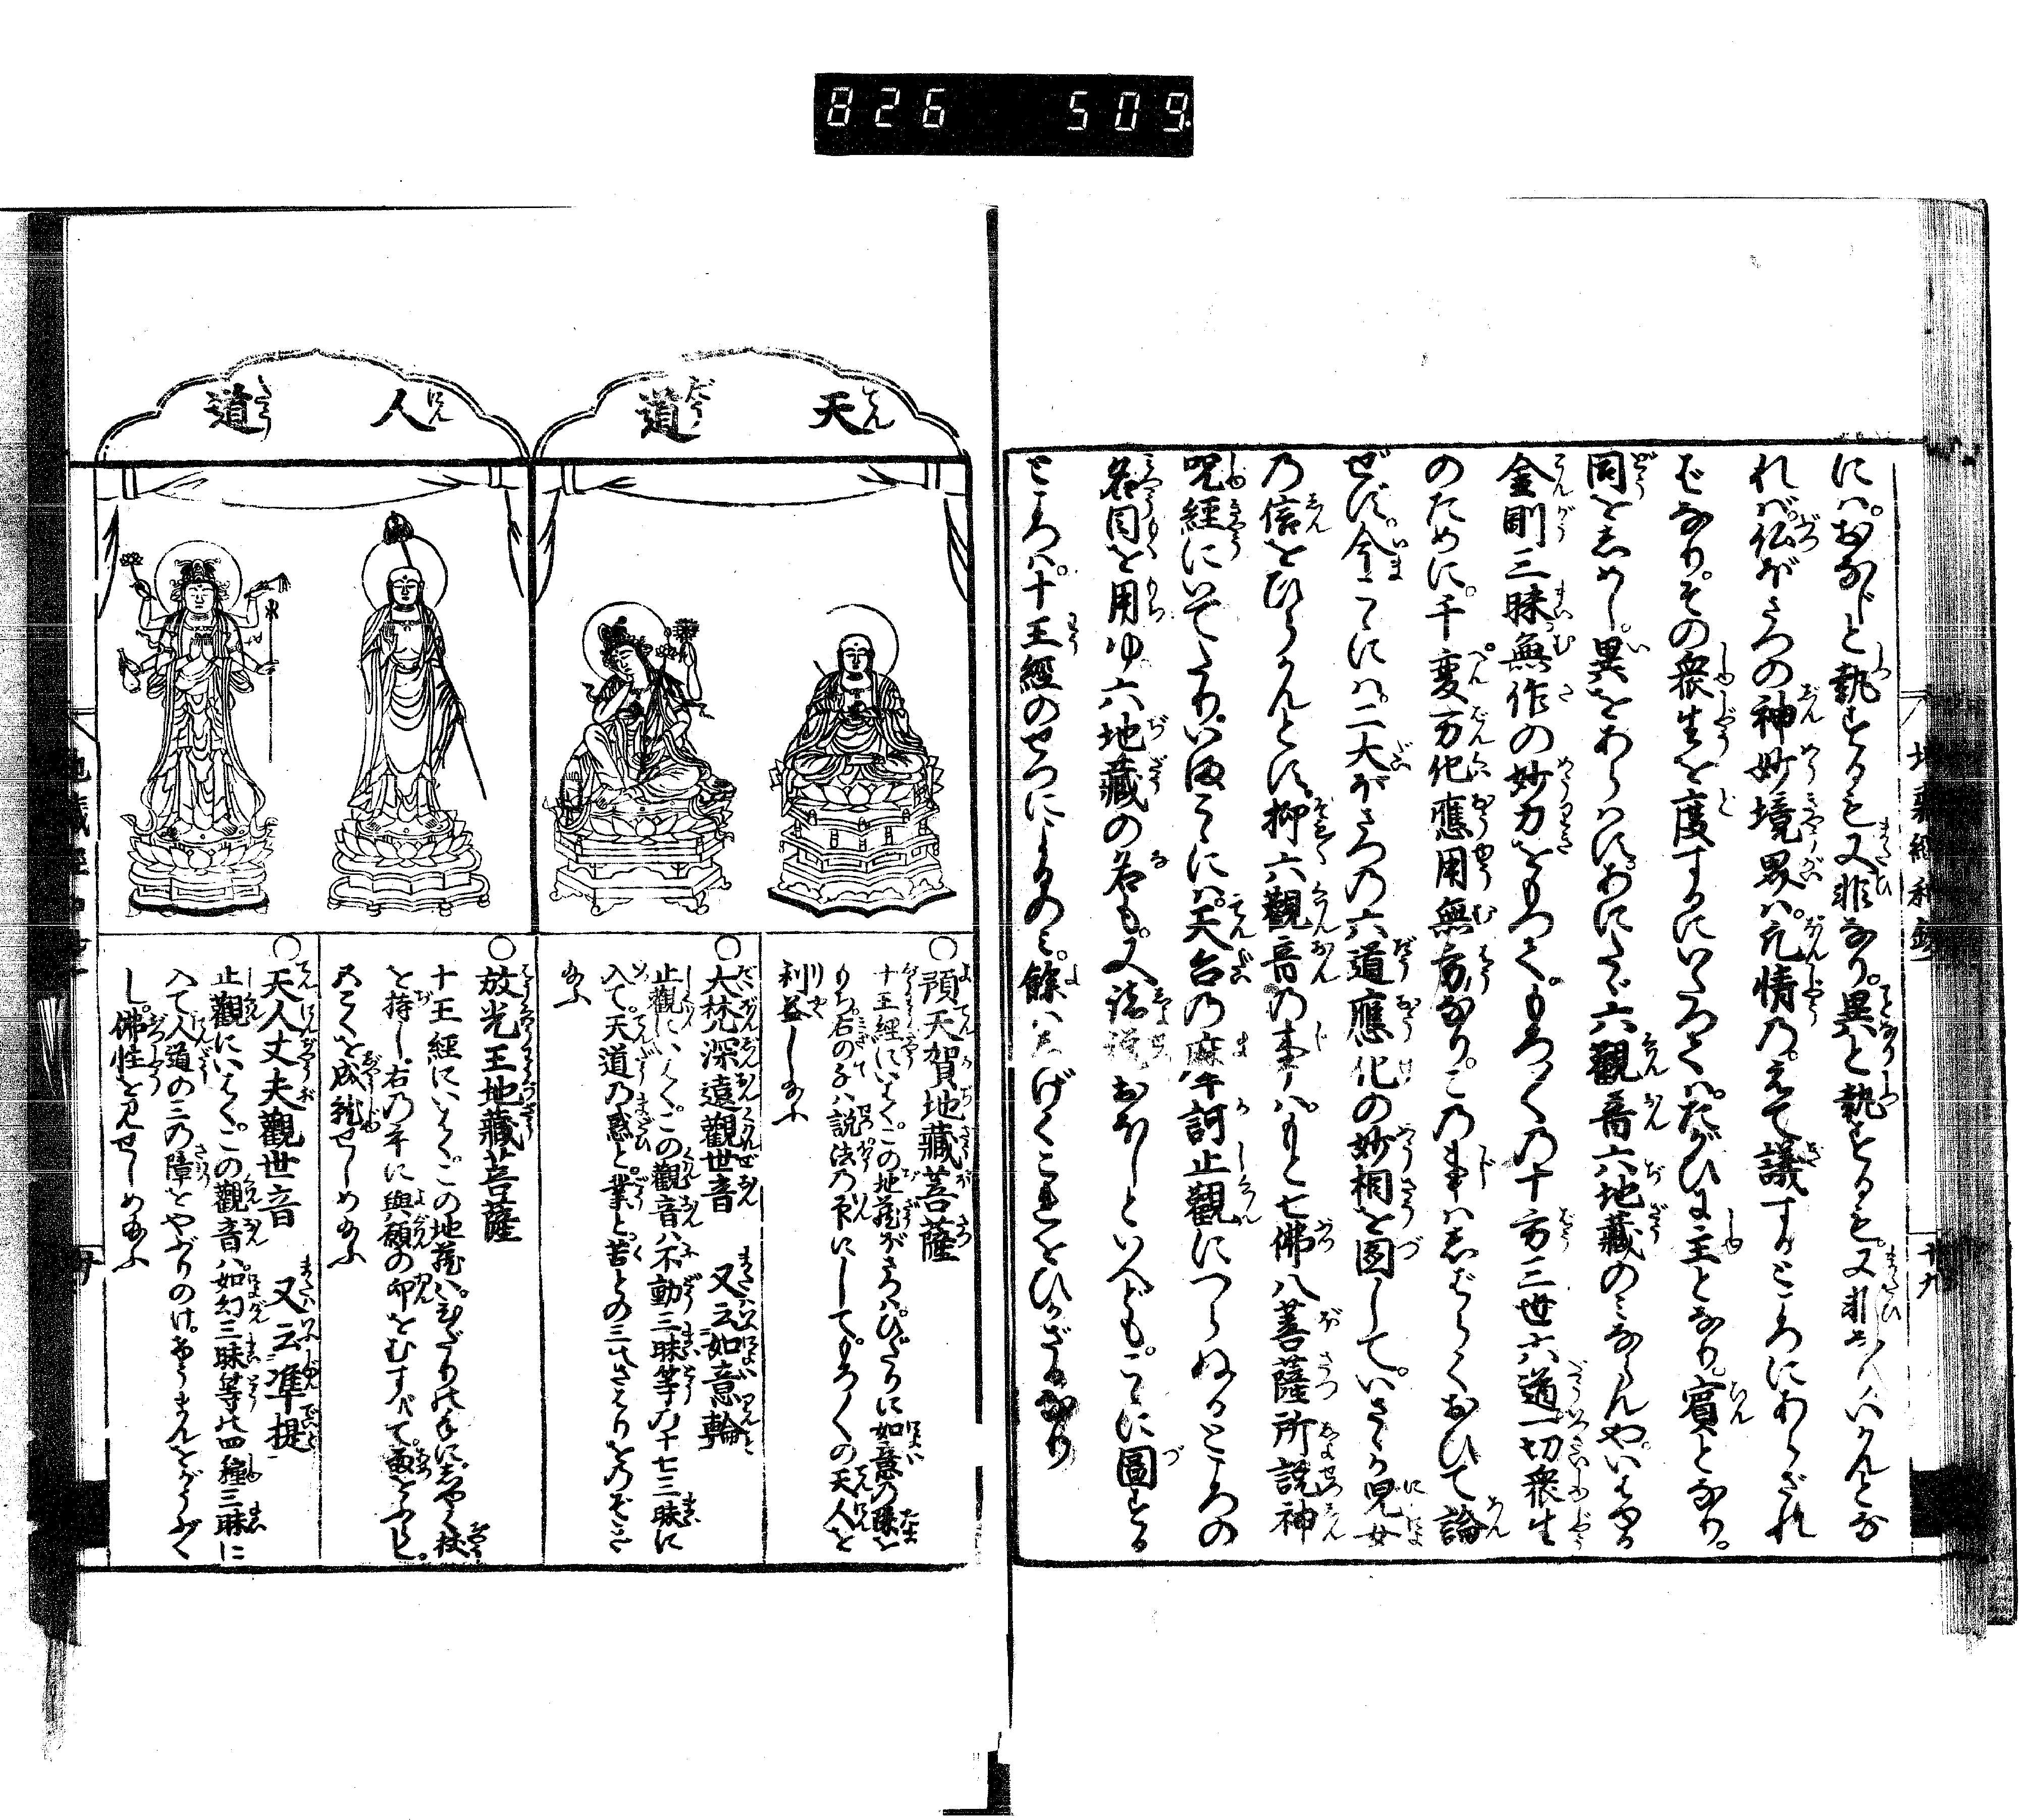 826 509
にハ。おなじと執するも又非なり。異と執するも。又非
れバ。仏ぼさつの神妙境界ハ。凡情の。えて議するところにあらざれ
ばなり。その衆生を度するにいたつてハ。たがひに主となり。賓となり。
同をしめし。異をあらハす。あにたゞ六觀音六地藏のミならんや。いはゆる
金剛三昧無作の妙力をもつて。もろ〳〵の十方三世六道一切衆生
のために。千変万化應用無方なり。この事ハしばらくおひて論
ぜず。今こゝにハ。二大ぼさつの六道應化の妙相を図して。いさゝか児女
の信をひらかんとす。抑六觀音の事ハ。もと七佛八菩薩所説神
呪經にいでたり。いまこゝにハ。天台の摩訶止觀につらぬるところの
名目を用ゆ。六地藏の名も。又諸説おほしといへども。こゝに圖する
ところハ。十王經のせつによるのミ。餘ハげくこれをひかざるなり
天道
人道
〇預天賀地藏菩薩
十王經にいはく。この地藏ぼさつハ。ひだりに如意の珠を
もち。右の手ハ説法の印にして。もろ〳〵の天人を
利益し給ふ
〇大梵深遠觀世音 又云如意輪
止觀にいはく。この觀音ハ不動三昧等の十七三昧に
入て。天道の惑と。業と。苦との三つさとりをのぞき
給ふ
〇放光王地藏菩薩
十王經にいはく。この地藏ハ。ひだりの手に。しやく杖
を持し。右の手に與願の印をむすびて。雨をふらし。
五こくを成熟せしめ給ふ
〇天人丈夫觀世音 又云準提
止觀にいはく。この觀音ハ。如幻三昧等の四種三昧に
入て人道の三の障をやぶりのけ。けうまんをがうぶく
し。佛性を見せしめ給ふ